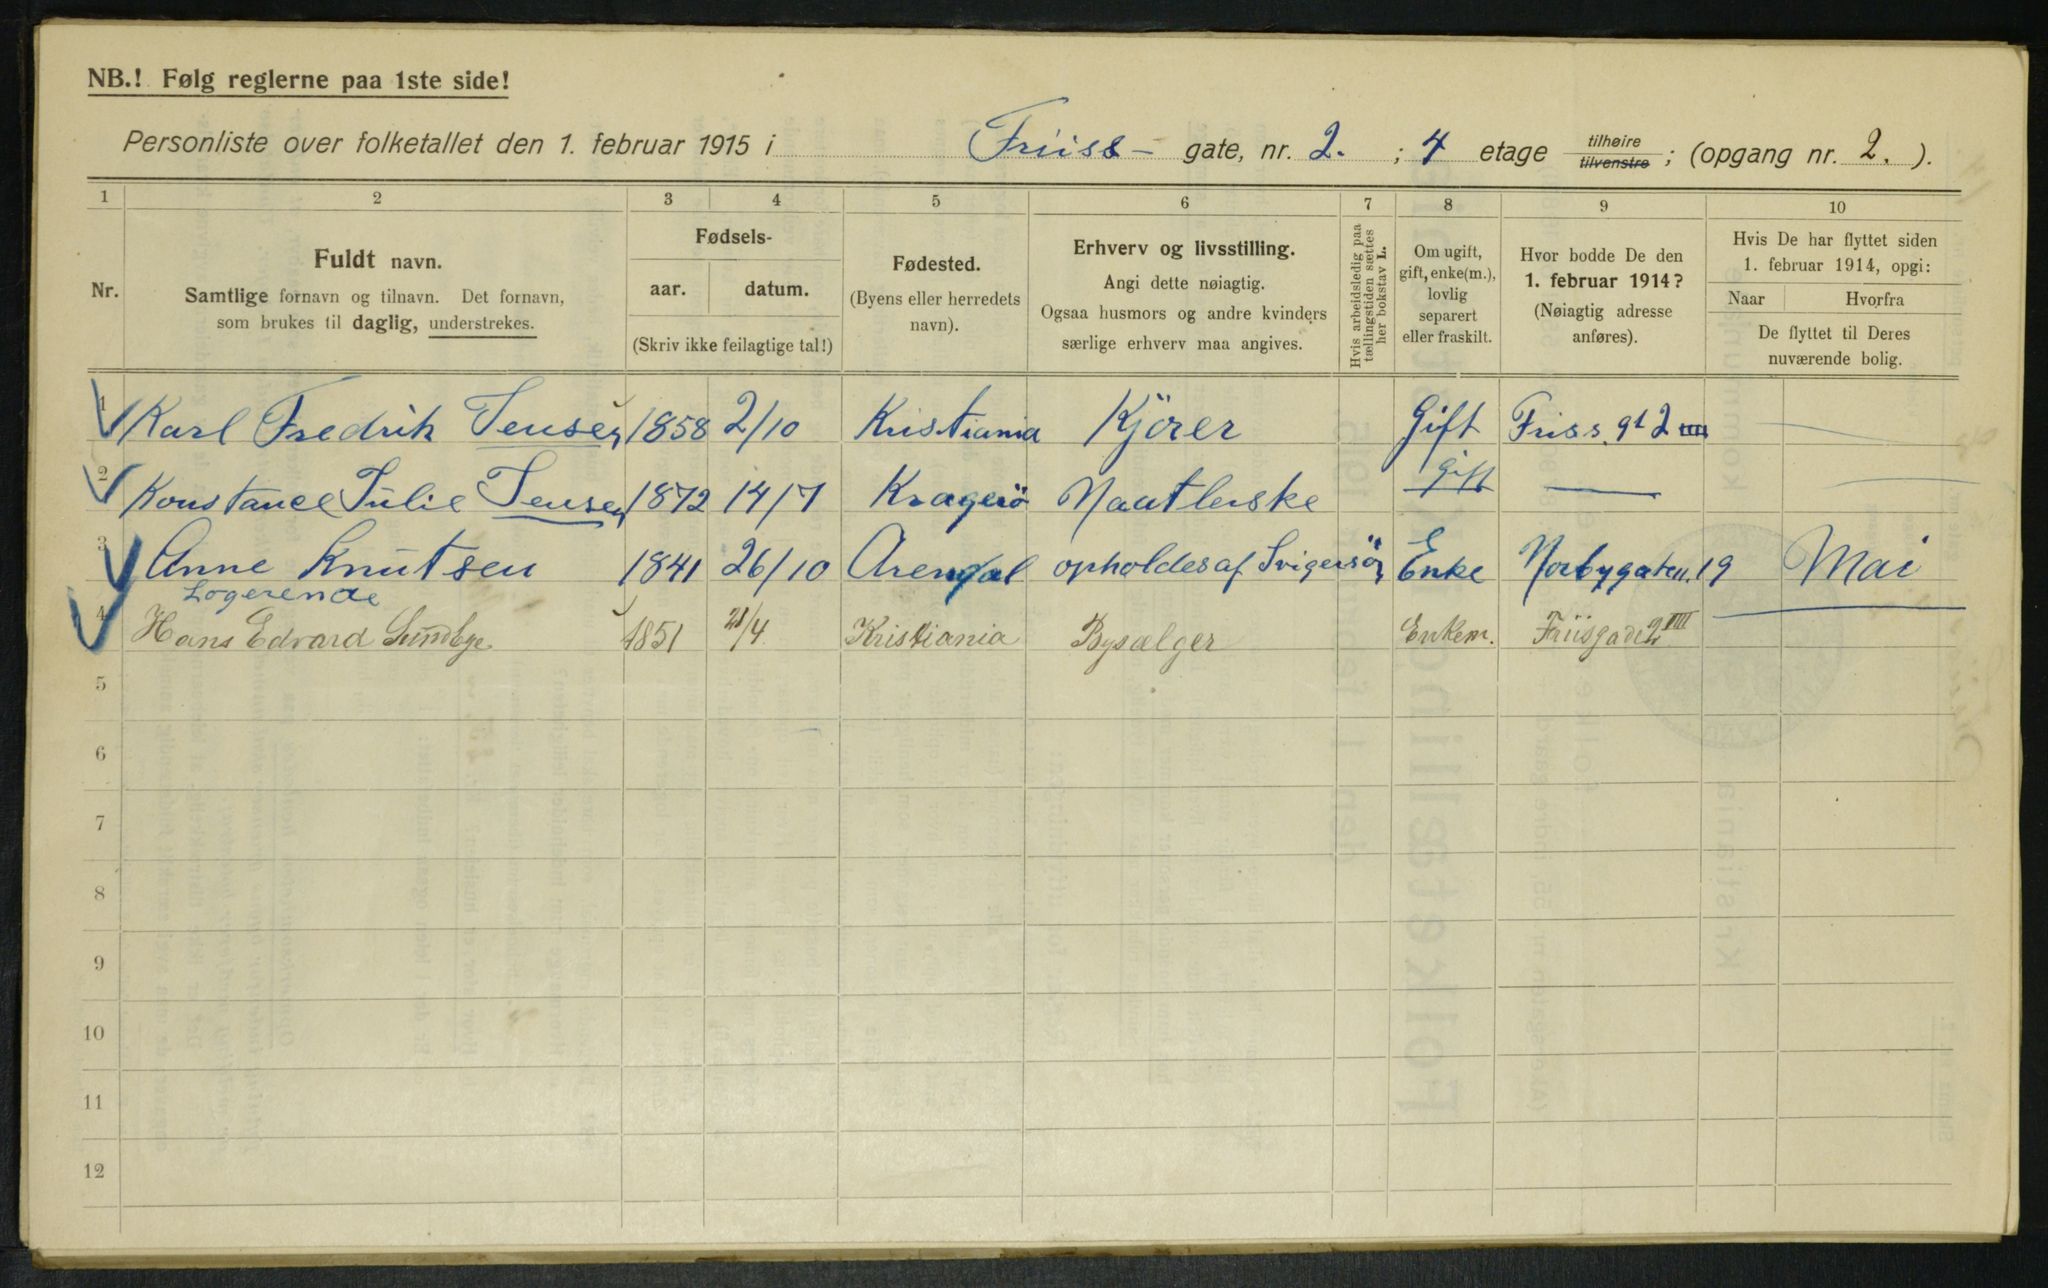 NB.! Følg reglerne paa 1ste side!
Personliste over folketallet den 1. februar 1915 i Friiss- gate, nr. 2. ; 4 etage tilhøire tilvenstre ; (opgang nr. 2. ).
1 2 3 4 5 6 7 8 9 10
Nr.
Fuldt navn.
Samtlige fornavn og tilnavn. Det fornavn,
som brukes til daglig, understrekes.
Fødsels-
aar. datum.
(Skriv ikke feilagtige tal!)
Fødested.
(Byens eller herredets
navn).
Erhverv og livsstilling.
Angi dette nøiagtig.
Ogsaa husmors og andre kvinders
særlige erhverv maa angives.
Hvis arbeidsledig paa
tællingstiden sættes
her bokstav L.
Om ugift,
gift, enke(m.),
lovlig
separert
eller fraskilt.
Hvor bodde De den
1. februar 1914?
(Nøiagtig adresse
anføres).
Hvis De har flyttet siden
1. februar 1914, opgi:
Naar Hvorfra
De flyttet til Deres
nuværende bolig.
1 Karl Fredrik Jensen 1858 2/10 Kristiania Kjörer Gift Friss. gt 2 IIII
2 Konstance Julie Jensen 1872 14/7 Kragerö Maatlerske Gift —
3 Anne Knutsen 1841 26/10 Arendal opholdes af Svigersön Enke Norbygaten. 19 Mai
Logerende
4 Hans Edvard Sundbye 1851 21/4 Kristiania Bysælger Enkem. Friisgade 2 IIII
5
6
7
8
9
10
11
12